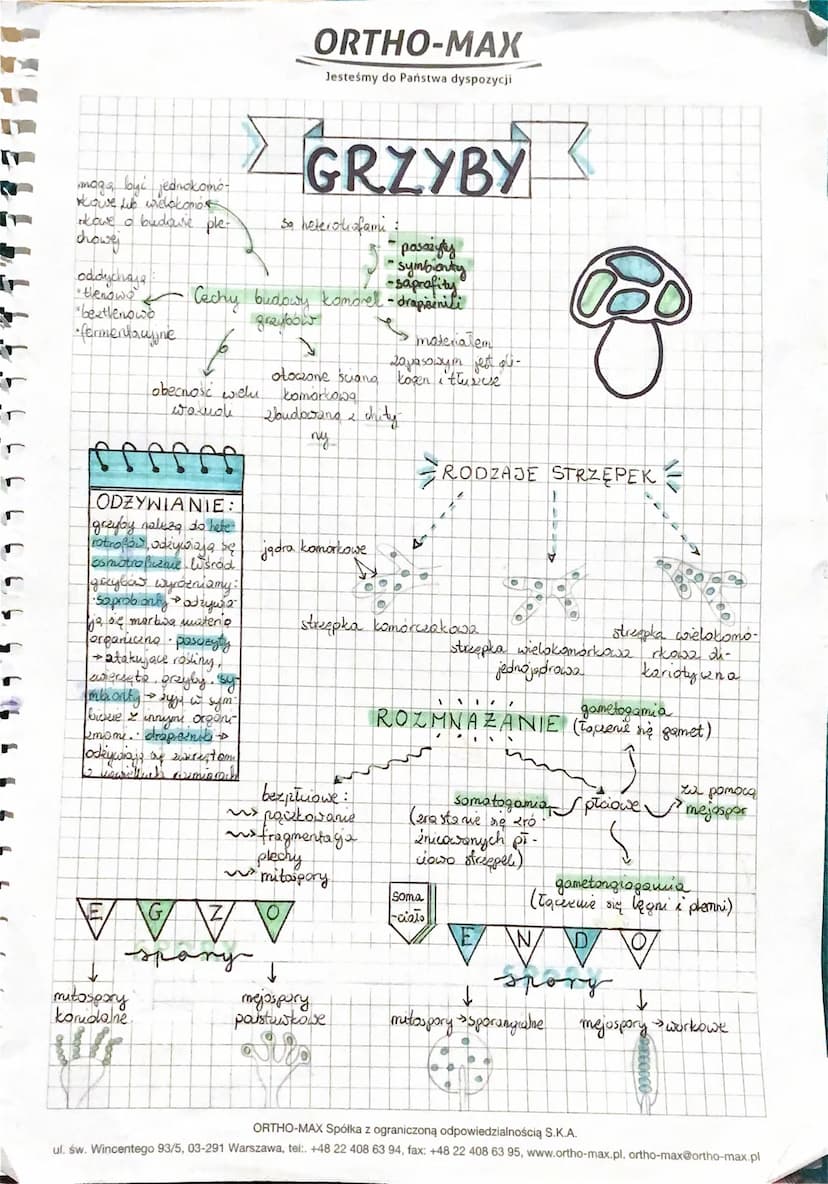 ORTHO-MAX
Jesteśmy do Państwa dyspozycji
GRZYBY
mogą być jednokomó-
rkowe lub wielokomó-
rkowe o budowie ple-
chowej
są heterotrofami:
- pasożyty
- symbionty
- saprofity
- drapieżniki
oddychają:
• tlenowo
• beztlenowo
• fermentacyjne
Cechy budowy komórek
grzybów
materiałem
zapasowym jest gli-
kogen i tłuszcze
obecność wielu
wakuoli
otoczone ścianą
komórkową
zbudowaną z chity
ny
ODŻYWIANIE:
grzyby należą do hete
rotrofów, odżywiają się
osmotroficznie. Wśród
grzybów wyróżniamy:
• saprobionty → odżywia
ją się martwą materią
organiczną • pasożyty
→ atakujące rośliny,
zwierzęta, grzyby. • sy
mbionty → żyją w sym
biozie z innymi organi-
zmami. • drapieżniki →
odżywiają się zwierzętami
o niewielkich rozmiarach
RODZAJE STRZĘPEK
jądra komórkowe
strzępka komórczakowa
strzępka wielokomórkowa
jednojądrowa
strzępka wielokomó-
rkowa di-
kariotyczna
ROZMNAŻANIE
gametogamia
(łączenie się gamet)
bezpłciowe:
pączkowanie
fragmentacja
plechy
mitospory
somatogamia
(zrastanie się zró
żnicowanych pł-
ciowo strzępek)
płciowe
za pomocą
mejospor
gametangiogamia
(łączenie się lęgni i plemni)
soma
-ciało
EGZO
spory
mitospory
konidialne
mejospory
podstawkowe
ENDO
spory
mitospory → sporangialne
mejospory → workowe
ORTHO-MAX Spółka z ograniczoną odpowiedzialnością S.K.A.
ul. św. Wincentego 93/5, 03-291 Warszawa, tel:. +48 22 408 63 94, fax: +48 22 408 63 95, www.ortho-max.pl. ortho-max@ortho-max.pl